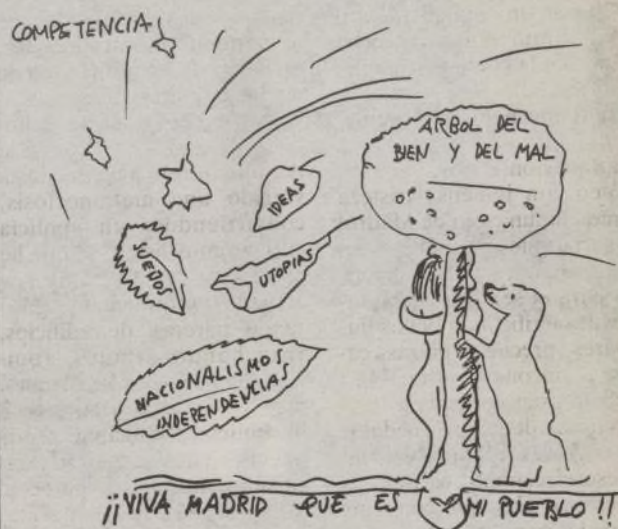 COMPETENCIA
ARBOL DEL
BIEN Y DEL MAL
IDEAS
SUEÑOS
UTOPIAS
NACIONALISMOS
INDEPENDENCIAS
¡¡VIVA MADRID QUE ES MI PUEBLO!!